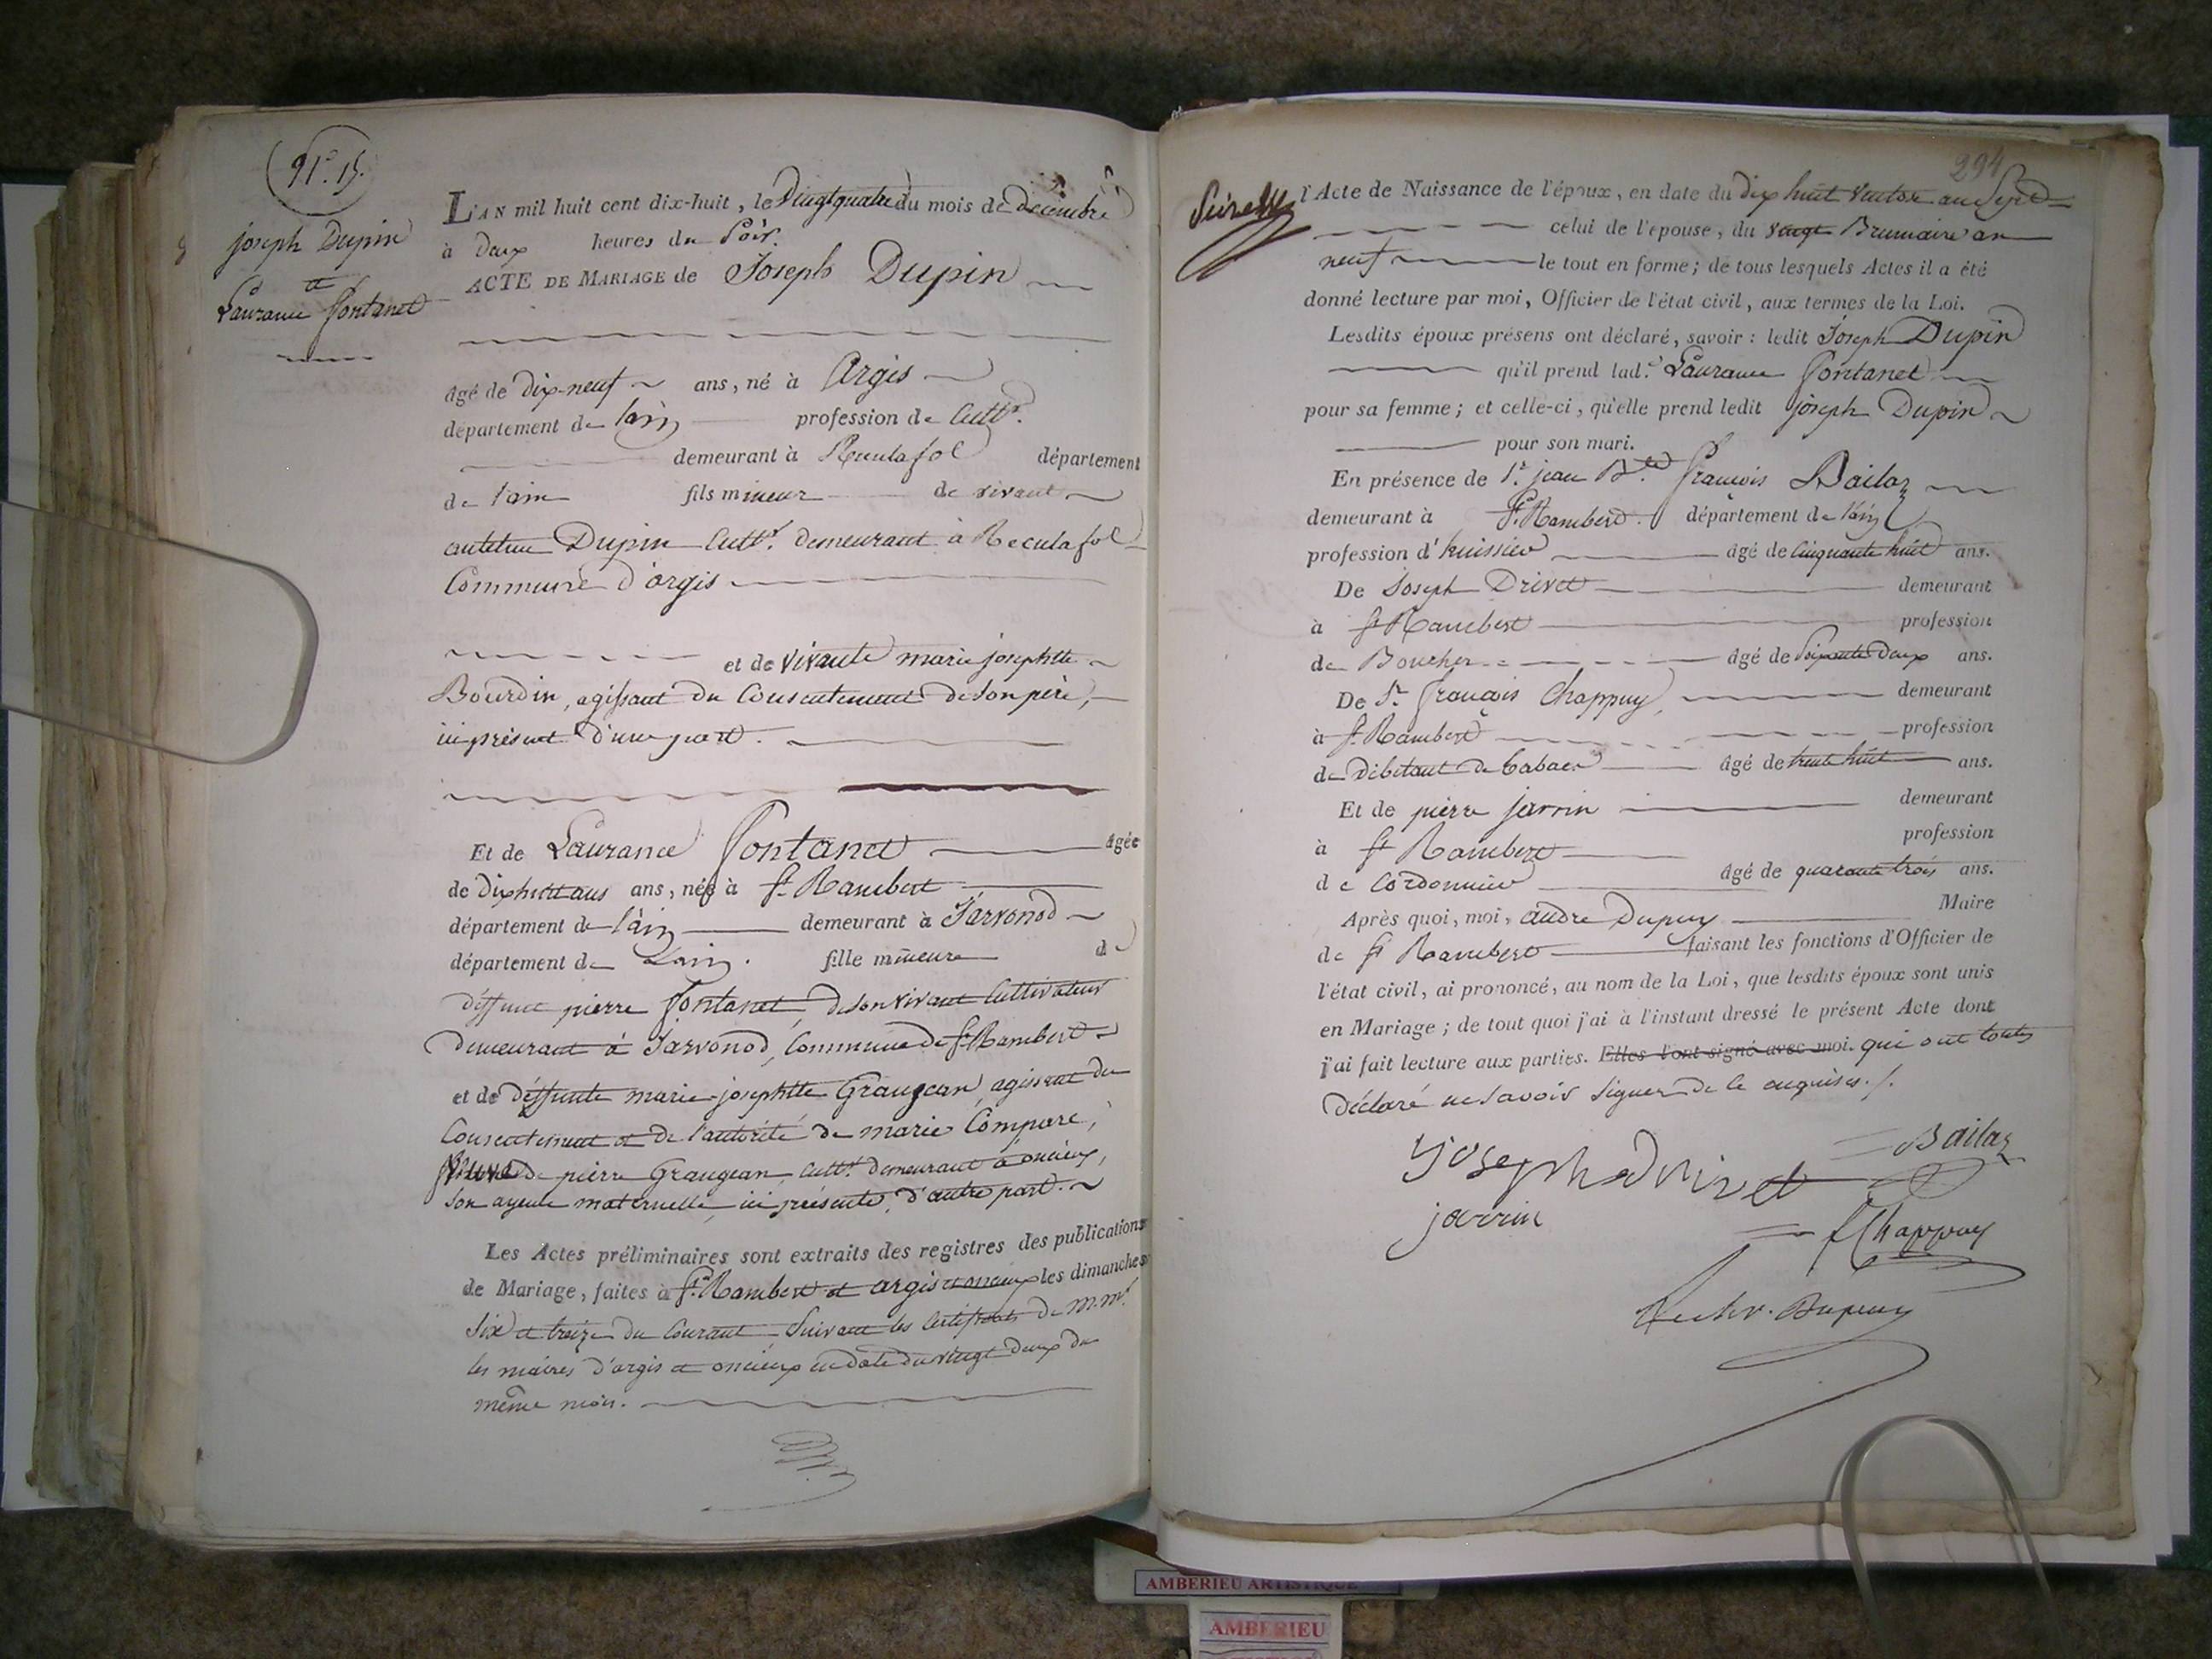 N.° 15.
joseph Dupin
et
Laurance Fontanet
L'AN mil huit cent dix-huit, le Vingt quatre du mois de décembre
à deux heures du Soir.
ACTE DE MARIAGE de Joseph Dupin
âgé de dix-neuf ans, né à Argis
département de l'ain profession de Cultr.
demeurant à Reculafol département
de l'ain fils mineur de vivant
Dupin Cultr. demeurant à Reculafol
Commune d'argis
et de vivante marie josephtte
Bourdin, agissant du Consentement de son père,
ici présent d'une part.
Et de Laurance Fontanet âgée
de dix huit ans ans, née à St Rambert
département de l'ain demeurant à Javornod
département de L'ain. fille mineure de
déffunt pierre Fontanet, de son vivant Cultivateur
demeurant à Javornod, Commune de St Rambert
et de déffunte marie-josephtte Graugean, agissant du
Consentement et de l'autorité de marie Compare,
Veuve de pierre Graugean, cultr. demeurant à oncieux,
Son ayeule maternelle, ici présente, d'autre part.
Les Actes préliminaires sont extraits des registres des publications
de Mariage, faites à St. Rambert et argis et oncieux les dimanches
Six et treize du Courant Suivant les Certificats de M.mrs
les maires d'argis et oncieux en date du vingt deux du
même mois.
294
l'Acte de Naissance de l'époux, en date du dix huit Ventose an Sept
celui de l'épouse, du vingt Brumaire an
neuf le tout en forme; de tous lesquels Actes il a été
donné lecture par moi, Officier de l'état civil, aux termes de la Loi.
Lesdits époux présens ont déclaré, savoir: ledit Joseph Dupin
qu'il prend lad.e Laurance Fontanet
pour sa femme; et celle-ci, qu'elle prend ledit joseph Dupin
pour son mari.
En présence de Sr. jean Bte. François Bailaz
demeurant à St. Rambert. département de l'ain
profession d'huissier âgé de Cinquante huit ans.
De Joseph Drivet demeurant
à St Rambert profession
de Boucher âgé de Soixante deux ans.
De Sr. François Chappuy, demeurant
à St. Rambert profession
de débitant de tabac âgé de trente huit ans.
Et de pierre jarrin demeurant
à St Rambert profession
de Cordonnier âgé de quarante trois ans.
Après quoi, moi, andré Dupuy Maire
de St Rambert faisant les fonctions d'Officier de
l'état civil, ai prononcé, au nom de la Loi, que lesdits époux sont unis
en Mariage; de tout quoi j'ai à l'instant dressé le présent Acte dont
j'ai fait lecture aux parties. Elles l'ont signé avec moi. qui ont toutes
Déclaré ne savoir signer de ce enquises./.
Bailaz
josephe drivet
jarrin
f Chappuy
Dupuy
AMBERIEU ARTISTIQUE
AMBERIEU